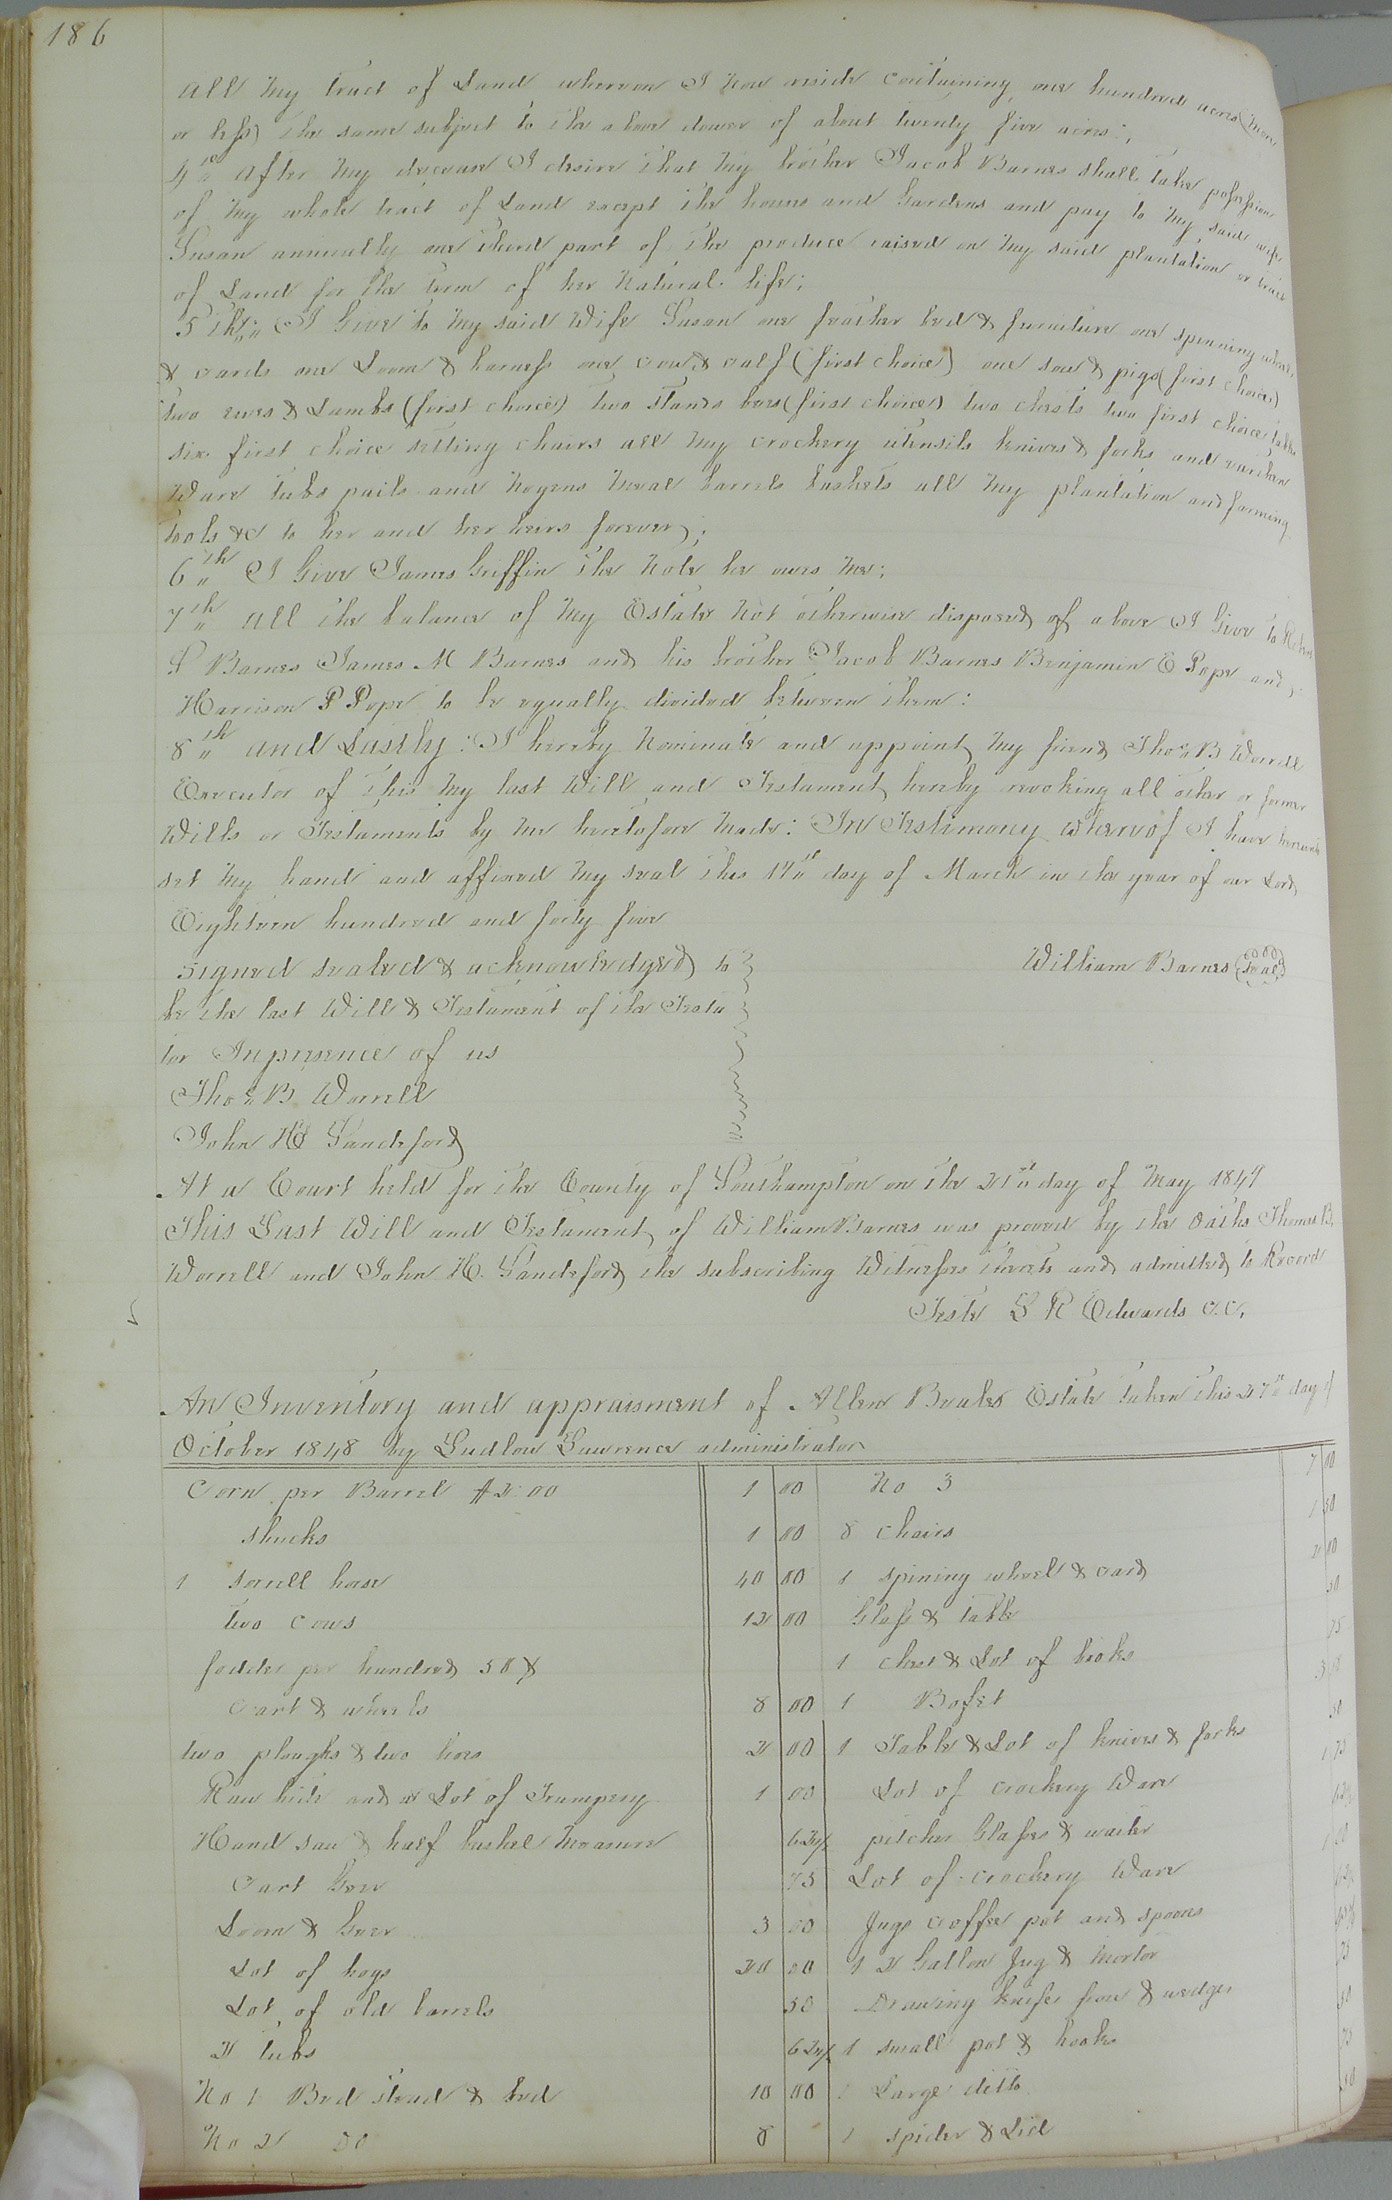 186
All my tract of Land whereon I now reside containing one hundred acres (more
or less) the same subject to the above dower of about twenty five acres;
4th After my decease I desire that my brother Jacob Barnes shall take possession
of my whole tract of Land except the houses and Gardens and pay to my said wife
Susan annually one third part of the produce raised on my said plantation or tract
of Land for the term of her natural life;
5th I Give to my said Wife Susan one feather bed & furniture one spinning wheel
& cards one Loom & harness one cow & calf (first choice) one sow & pigs (first choice)
two ewes & Lambs (first choice) two stands bees (first choice) two chests two first choice tables
six first choice setting chairs all my crockery utensils knives & forks and earthen
Ware tubs pails and nogens meal barrels baskets all my plantation and farming
tools &c to her and her heirs forever;
6th I Give James Griffin the note he owes me;
7th All the balance of my Estate not otherwise disposed of above I Give to
S Barnes James M Barnes and his brother Jacob Barnes Benjamin E Pope and
Harrison P Pope to be equally divided between them:
8th and Lastly: I hereby nominate and appoint my friend Thos B Worrell
Executor of this my last Will and Testament hereby revoking all other or former
Wills or Testaments by me heretofore made: In Testimony whereof I have hereunto
set my hand and affixed my seal this 17th day of March in the year of our Lord
Eighteen hundred and forty five
Signed sealed & acknowledged to William Barnes (Seal)
be the last Will & Testament of the Testa
tor In presence of us
Thos B Worrell
John H Sandeford
At a Court held for the County of Southampton on the 21st day of May 1849
This Last Will and Testament of William Barnes was proved by the Oaths Thomas B.
Worrell and John H. Sandeford the subscribing Witnesses thereto and admitted to Record
Teste L R Edwards C.C.
An Inventory and appraisment of Allen Beales Estate taken this 27th day of
October 1848 by Ludlow Lawrence administrator
Corn per Barrel $2.00 1 00 No 3 7 00
shucks 1 00 8 chairs 1 50
1 sorrell horse 40 00 1 spining wheel & card 2 00
two cows 12 00 Glass & table 50
fodder per hundred 50 ¢ 1 chest & Lot of books 75
Cart & wheels 8 00 1 Bofet 3
two ploughs & two hoes 2 00 1 Table & Lot of knives & forks 50
Raw hide and a Lot of Trumpery 1 00 Lot of crockery Ware 1 75
Hand saw & half bushel measure 62½ pitcher Glasses & waiter 62½
Cart Geer 75 Lot of crockery Ware 1 00
Loom & Geer 3 00 Jugs coffee pot and spoons 62½
Lot of hogs 20 00 1 2 Gallon Jug & Mortor
Lot of old barrels 50 Drawing knifes frow & wedges 75
2 tubs 62½ 1 small pot & hooks 50
No 1 Bed stead & bed 10 00 1 Large ditto 75
No 2 Do 8 1 spider & Lid 50